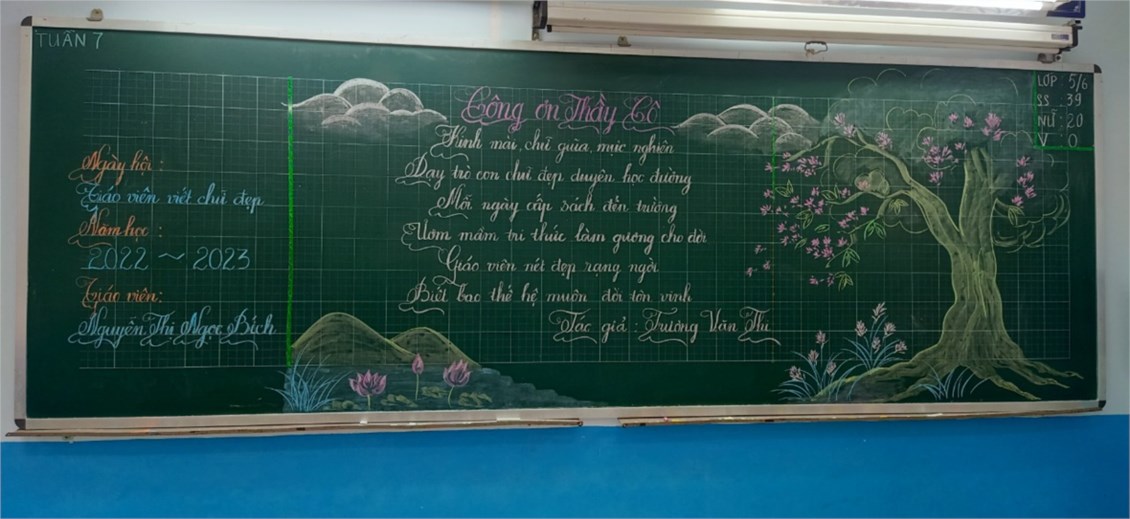 TUẦN 7
Ngày hội:
Giáo viên viết chữ đẹp
Năm học:
2022 ~ 2023
Giáo viên:
Nguyễn Thị Ngọc Bích
Công ơn Thầy Cô
Kính mài, chì giũa, mực nghiên
Dạy trò con chữ đẹp duyên học đường
Mỗi ngày cắp sách đến trường
Ươm mầm tri thức làm gương cho đời
Giáo viên nét đẹp rạng ngời
Biết bao thế hệ muôn đời tôn vinh
Tác giả: Trương Văn Thi
LỚP : 5/6
SS : 39
NỮ : 20
V : 0